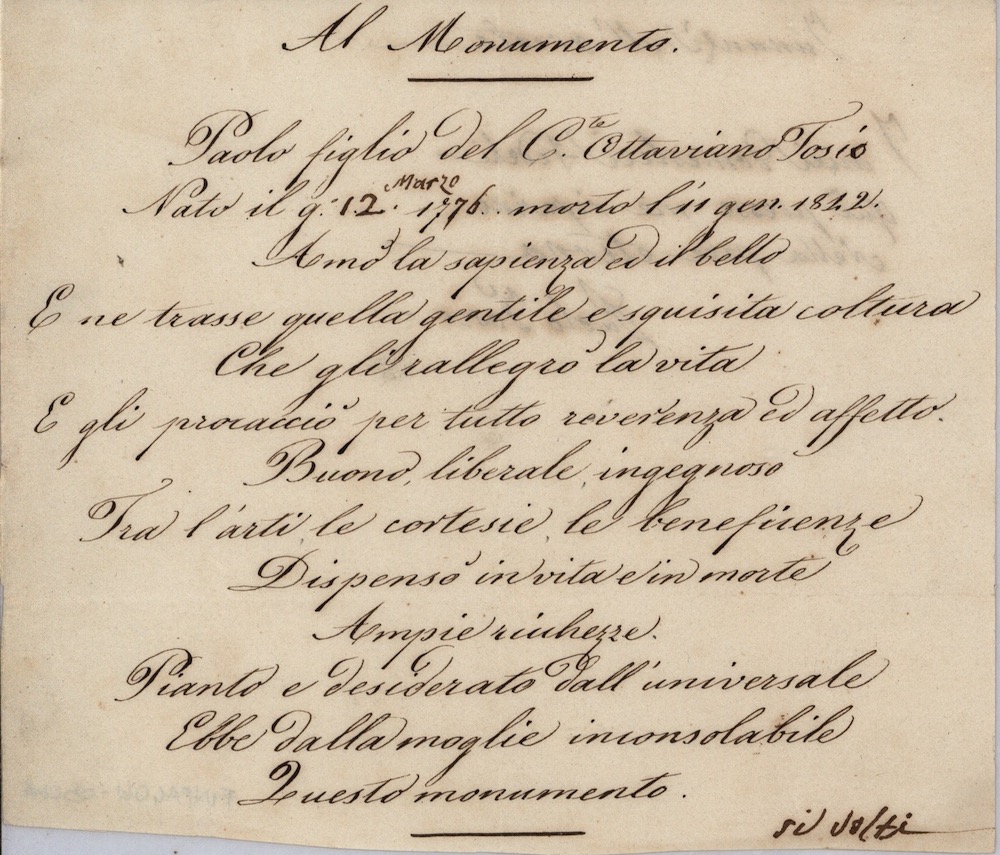 Al Monumento.
Paolo figlio del C.te Ottaviano Tosio
Nato il g. 12. Marzo 1776. morto l'11 gen. 1842.
Amò la sapienza ed il bello
E ne trasse quella gentile e squisita coltura
Che gli rallegrò la vita
E gli procacciò per tutto reverenza ed affetto.
Buono, liberale, ingegnoso
Tra l'arti, le cortesie, le beneficenze
Dispensò in vita e in morte
Ampie richezze.
Pianto e desiderato dall'universale
Ebbe dalla moglie inconsolabile
Questo monumento.
si volti